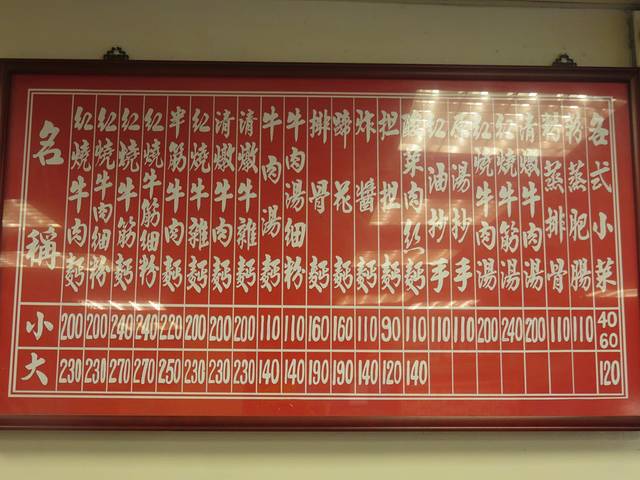 名稱 小 大
紅燒牛肉麵 200 230
紅燒牛肉細粉 200 230
紅燒牛筋麵 240 270
紅燒牛筋細粉 240 270
半筋牛肉麵 220 250
紅燒牛雜麵 200 230
清燉牛肉麵 200 230
清燉牛雜麵 200 230
牛肉湯麵 110 140
牛肉湯細粉 110 140
排骨麵 160 190
蹄花麵 160 190
炸醬麵 110 140
担担麵 90 120
酸菜肉絲麵 110 140
紅油抄手 110
原湯抄手 110
紅燒牛肉湯 200
紅燒牛筋湯 240
清燉牛肉湯 200
粉蒸排骨 110
粉蒸肥腸 110
各式小菜 40 60 120